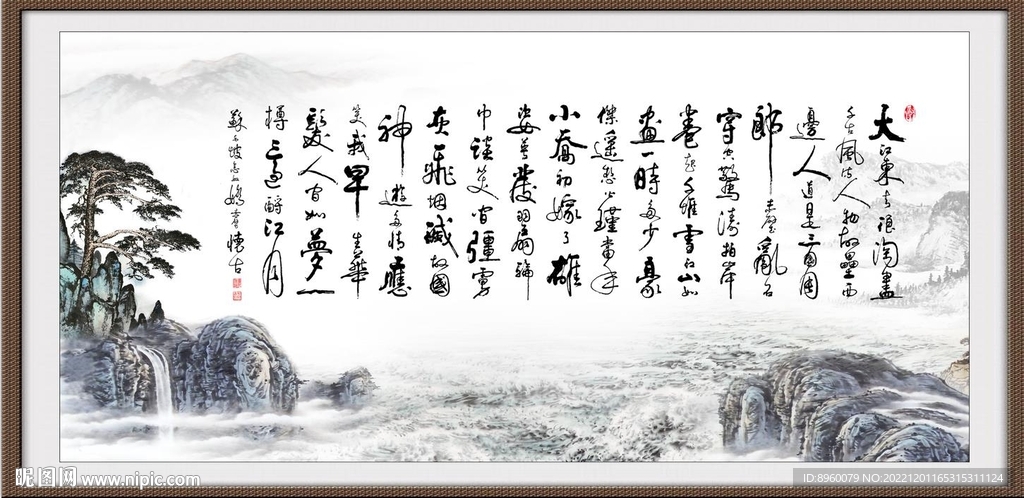 大江東去浪淘盡
千古風流人物故壘西
邊人道是三國周
郎赤壁亂石
穿空驚濤拍岸
卷起千堆雪江山如
畫一時多少豪
傑遙想公瑾當年
小喬初嫁了雄
姿英發羽扇綸
巾談笑間彊虜
灰飛烟滅故國
神遊多情應
笑我早生華
髮人間如夢一
樽還酹江月
蘇东坡念奴嬌赤壁懷古
昵图网 www.nipic.com
ID:8960079 NO:20221201165315311124